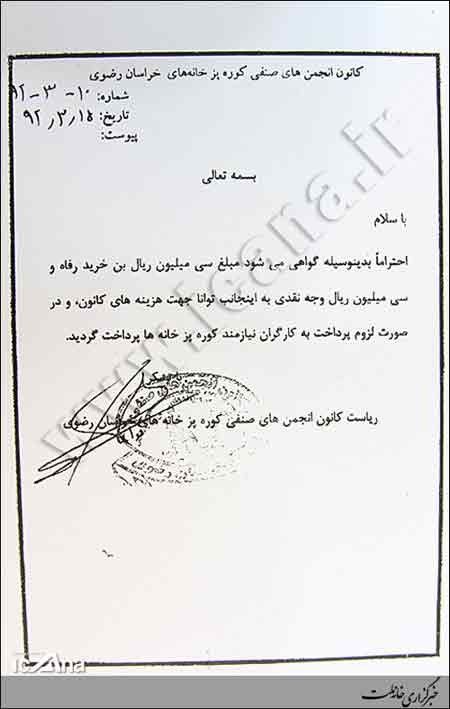 کانون انجمن های صنفی کوره پز خانه‌های خراسان رضوی
شماره: ۱۰-۳-۹۲
تاریخ: ۹۲,۳,۱۵
پیوست:
بسمه تعالی
با سلام
احتراماً بدینوسیله گواهی می شود مبلغ سی میلیون ریال بن خرید رفاه و
سی میلیون ریال وجه نقدی به اینجانب توانا جهت هزینه های کانون، و در
صورت لزوم پرداخت به کارگران نیازمند کوره پز خانه ها پرداخت گردید.
ریاست کانون انجمن های صنفی کوره پز خانه های خراسان رضوی
www.icana.ir
icana
خبرگزاری خانه ملت